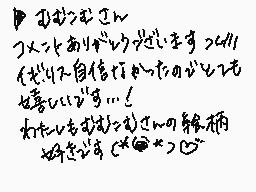 むむこむさん
コメントありがとうございます
イギリス自信なかったのでとても
嬉しいです…!
わたしもむむこむさんの絵柄
好きです(*

*)♡